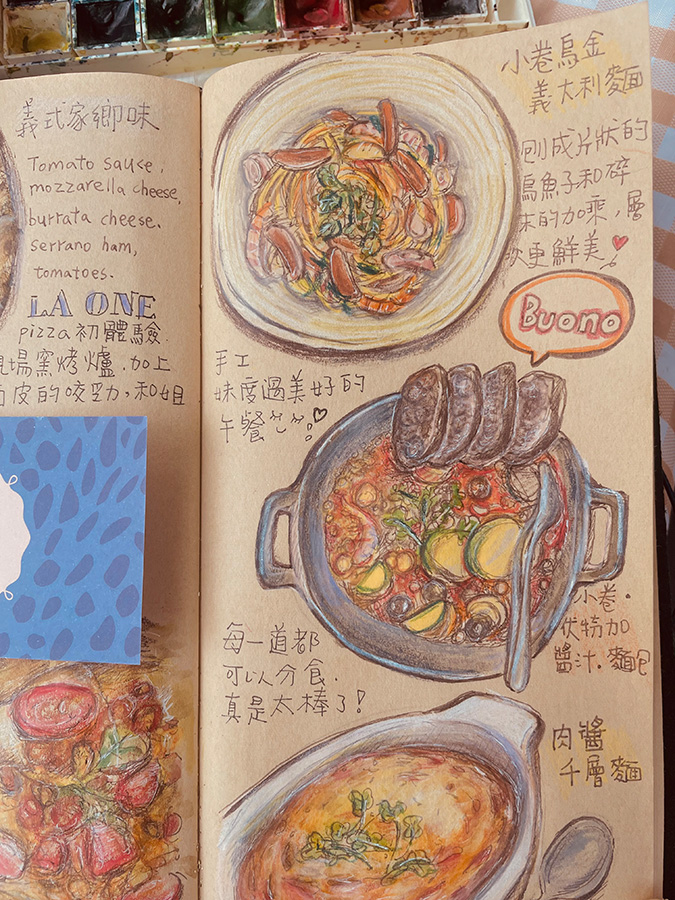 義式家鄉味
Tomato sauce,
mozzarella cheese,
burrata cheese.
serrano ham,
tomatoes.
LA ONE
pizza初體驗.
現場窯烤爐.加上
的咬勁,和姐
小卷烏金
義大利麵
刨成片狀的
烏魚子和碎
末的加乘,層
次更鮮美!
Buono
手工
妹度過美好的
午餐
小卷.
伏特加
醬汁.麵包
每一道都
可以分食.
真是太棒了!
肉醬
千層麵